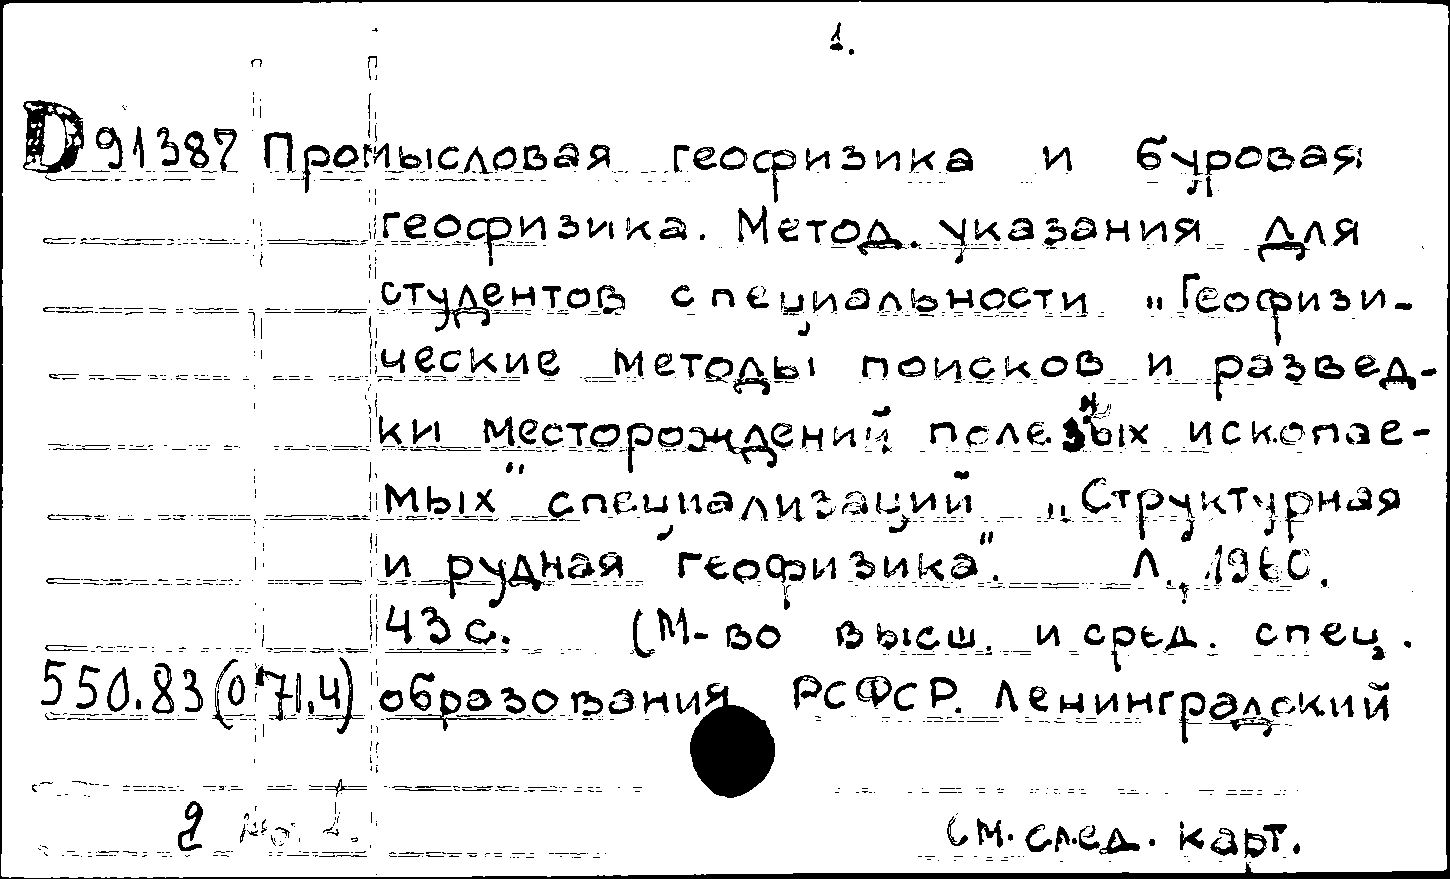 1.
D91387 Промысловая геофизика и буровая
геофизика. Метод. указания для
студентов специальности „Геофизи-
ческие методы поисков и развед-
ки месторождений полезных ископае-
мых" специализаций „Структурная
и рудная геофизика". Л., 1960.
43 с. (М-во высш. и сред. спец.
550.83(071.4) образования РСФСР. Ленинградский
см. след. карт.